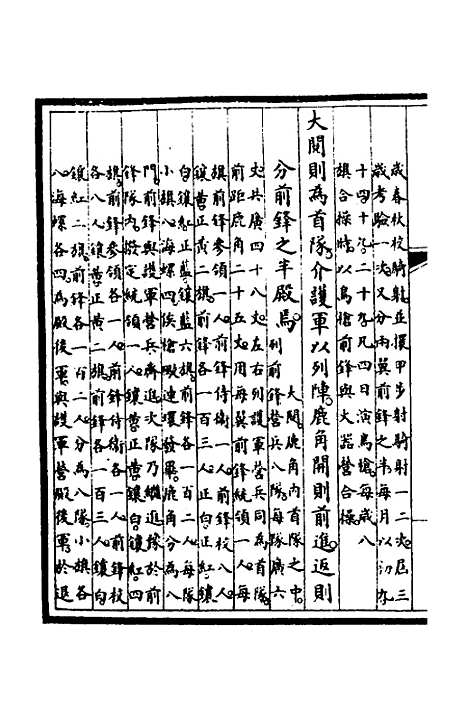 歲春秋校騎射並擐甲步射騎射一二次屆三
歲考驗一次又分兩翼前鋒之半每月以初九
十四十九二十九凡四日演鳥槍每歲八
旗合操時以鳥槍前鋒與火器營合操
大閱則為首隊介護軍以列陣鹿角開則前進返則
分前鋒之半殿焉
大閱鹿角內首隊之中
列前鋒營兵八隊每隊廣六
丈共廣四十八丈左右列護軍營兵同為首隊
前距鹿角二十五丈用每翼前鋒統領一人每
旗前鋒參領一人前鋒侍衛一人前鋒校八人
鑲黃正黃二旗前鋒各一百三人正白正紅鑲
白鑲紅正藍鑲藍六旗前鋒各一百二人每隊
小旗八海螺四俟槍礮連環發畢鹿角分為八
門前鋒與護軍營兵齊進次隊乃繼進條於前
鋒隊內撥定統領一人鑲黃正黃鑲白鑲紅四
旗前鋒參領各一人前鋒侍衛各一人前鋒校
各八人鑲黃正黃二旗前鋒各一百三人鑲白
鑲紅二旗前鋒各一百二人分為八隊小旗各
八海螺各四為殿後軍與護軍營殿後軍於退